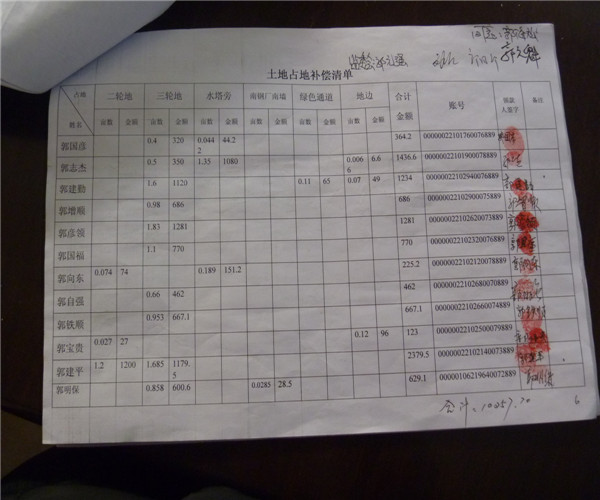 同意
土地占地补偿清单
占地 二轮地 三轮地 水塔旁 南钢厂南墙 绿色通道 地边 合计 账号 领款 备注
姓名 亩数 金额 亩数 金额 亩数 金额 亩数 金额 亩数 金额 亩数 金额 金额 人签字
郭国彦 0.4 320 0.0442 44.2 364.2 00000022101760076889
郭志杰 0.5 350 1.35 1080 0.0066 6.6 1436.6 00000022101900078889
郭建勤 1.6 1120 0.11 65 0.07 49 1234 00000022102940076889
郭增顺 0.98 686 686 00000022102900075889
郭彦领 1.83 1281 1281 00000022102620073889
郭国福 1.1 770 770 00000022102320076889
郭向东 0.074 74 0.189 151.2 225.2 00000022102120078889
郭自强 0.66 462 462 00000022102680070889
郭铁顺 0.953 667.1 667.1 00000022102660074889
郭宝贵 0.027 27 0.12 96 123 00000022102500079889
郭建平 1.2 1200 1.685 1179.5 2379.5 00000022102140073889
郭明保 0.858 600.6 0.0285 28.5 629.1 00000106219640072889
合计: 10257.70 6